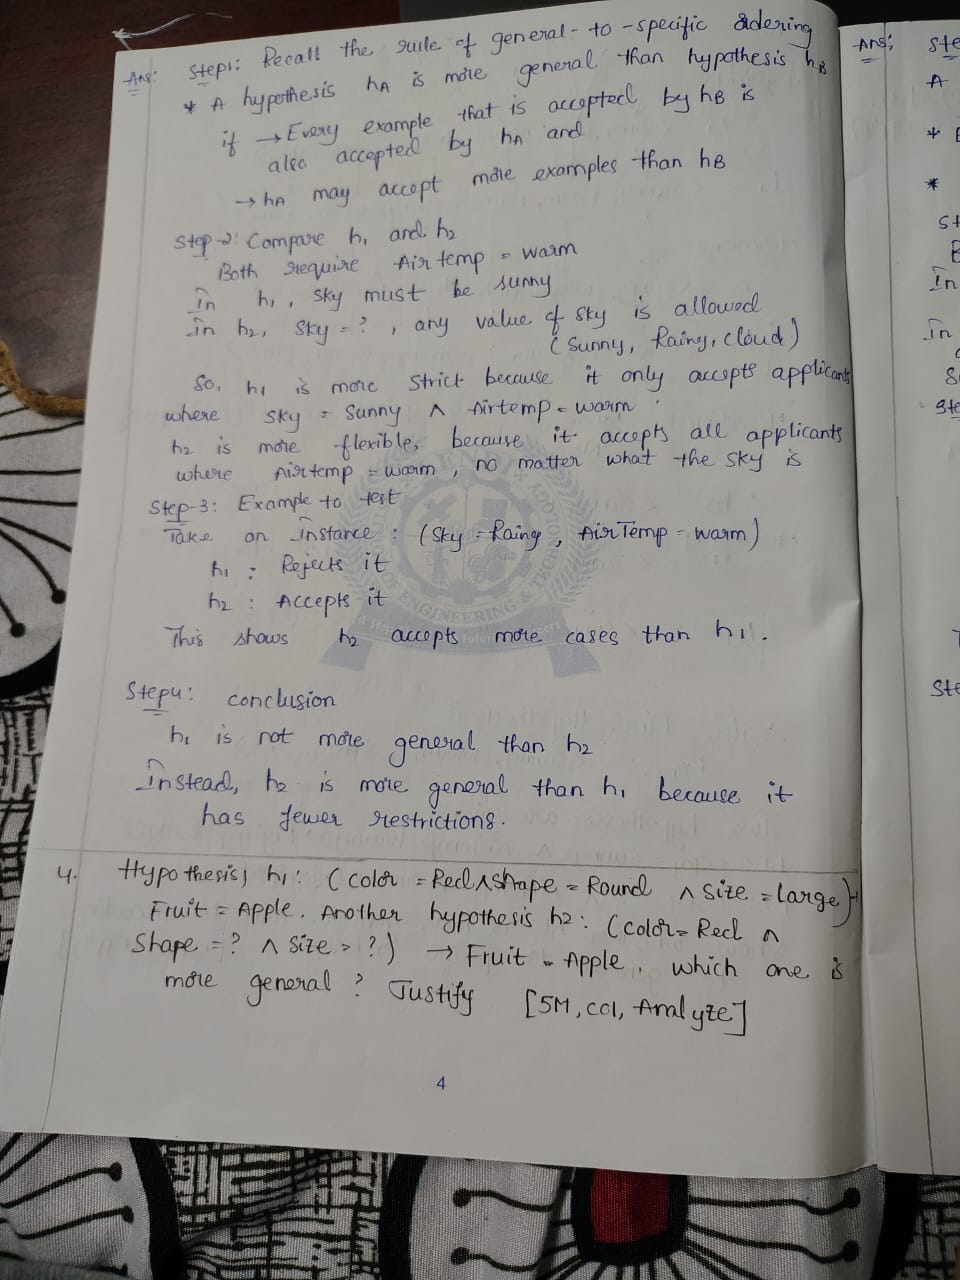 Ans: Step1: Recall the rule of general-to-specific ordering
* A hypothesis hA is more general than hypothesis hB
if → Every example that is accepted by hB is
also accepted by hA and
→ hA may accept more examples than hB
Step-2: Compare h1 and h2
Both require Airtemp = warm
In h1, sky must be sunny
in h2, sky = ?, any value of sky is allowed
(sunny, Rainy, cloud)
So, h1 is more strict because it only accepts applicants
where sky = sunny ∧ Airtemp = warm
h2 is more flexible, because it accepts all applicants
where Airtemp = warm, no matter what the sky is
Step-3: Example to test
Take an instance: (sky = Raing, AirTemp = warm)
h1 : Rejects it
h2 : Accepts it
This shows h2 accepts more cases than h1.
OF ENGINEERING & TECHNOLOGY
Step4: conclusion
h1 is not more general than h2
Instead, h2 is more general than h1 because it
has fewer restrictions.
4. Hypothesis) h1: (color = Red ∧ shape = Round ∧ size = large) →
Fruit = Apple. Another hypothesis h2: (color = Red ∧
Shape = ? ∧ size = ?) → Fruit = Apple. which one is
more general? Justify [5M, CO1, Analyze]
4
Ans: Ste
A
*
*
St
In
In
Ste
Ste